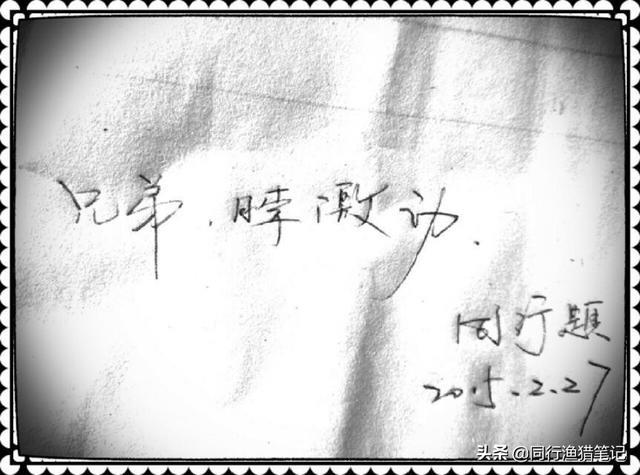 兄弟、脖激动.
同行题
2015.2.27
头条 @同行渔猎笔记